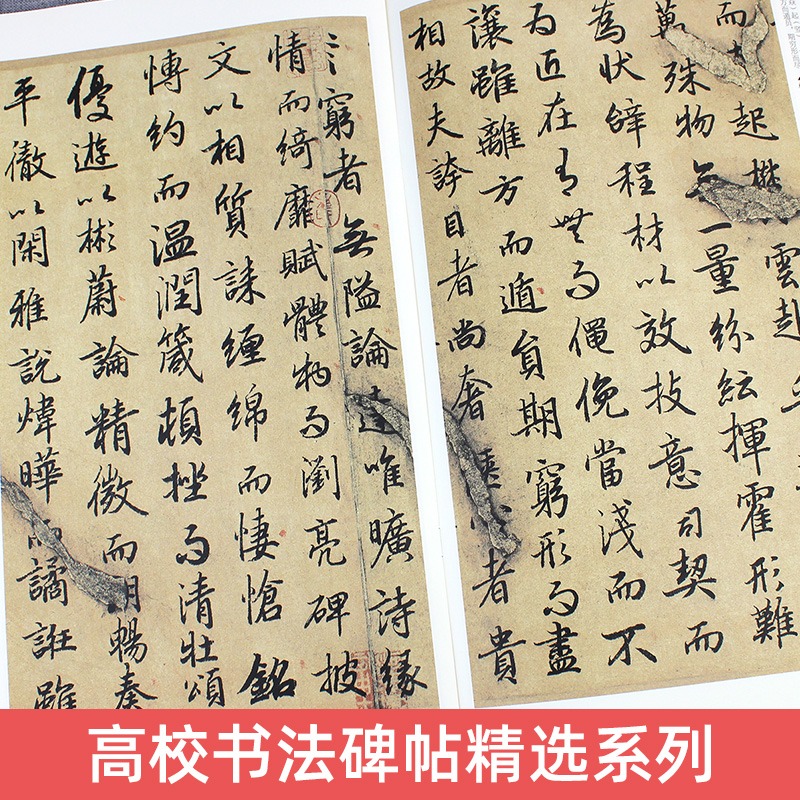 而起雲
萬殊物無一量紛紜揮霍形難
為狀辭程材以效技意司契而
為匠在有無而僶俛當淺而不
讓雖離方而遁員期窮形而盡
相故夫誇目者尚奢愜心者貴
窮者無隘論達唯曠詩緣
情而綺靡賦體物而瀏亮碑披
文以相質誄纏綿而悽愴銘
博約而温潤箴頓挫而清壯頌
優遊以彬蔚論精微而朗暢奏
平徹以閑雅說煒曄而譎誑雖
高校书法碑帖精选系列